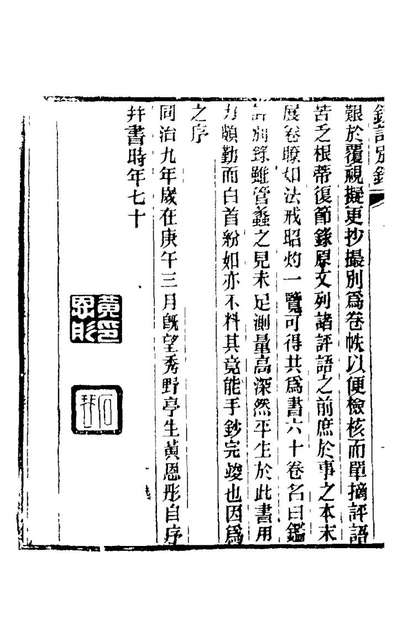 鑑評別錄
艱於覆視擬更抄撮別爲卷帙以便檢核而單摘評語
苦乏根蔕復節錄原文列諸評語之前庶於事之本末
展卷瞭如法戒昭灼一覽可得共爲書六十卷名曰鑑
評別錄雖管蠡之見未足測量高深然平生於此書用
力頗勤而白首紛如亦不料其竟能手鈔完竣也因爲
之序
同治九年歲在庚午三月旣望秀野亭生黃恩彤自序
幷書時年七十
黃恩彤印